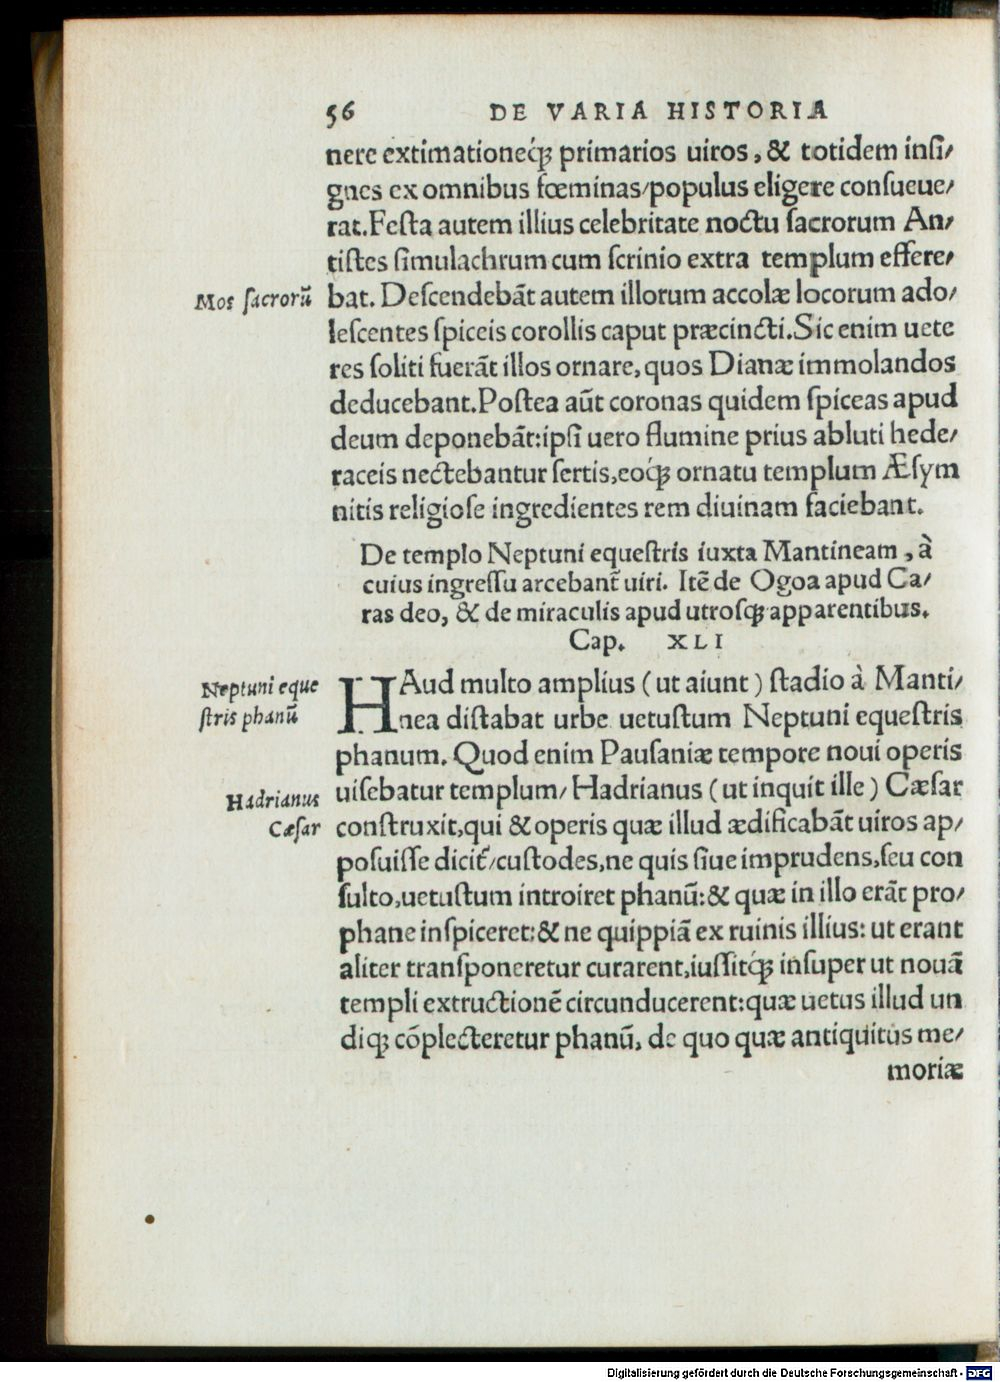 56 DE VARIA HISTORIA
nere extimationeq́ꝫ primarios uiros, & totidem inſi/
gnes ex omnibus fœminas/populus eligere conſueue/
rat.Feſta autem illius celebritate noctu ſacrorum An/
tiſtes ſimulachrum cum ſcrinio extra templum effere/
Mos ſacrorũ
bat. Deſcendebãt autem illorum accolæ locorum ado/
leſcentes ſpiceis corollis caput præcincti.Sic enim uete
res ſoliti fuerãt illos ornare, quos Dianæ immolandos
deducebant.Poſtea aũt coronas quidem ſpiceas apud
deum deponebãt:ipſi uero flumine prius abluti hede/
raceis nectebantur ſertis,eoq́ꝫ ornatu templum Æſym
nitis religioſe ingredientes rem diuinam faciebant.
De templo Neptuni equeſtris iuxta Mantineam, à
cuius ingreſſu arcebant̃ uiri. Itẽ de Ogoa apud Ca/
ras deo, & de miraculis apud utroſqꝫ apparentibus.
Cap. XLI
Neptuni eque
ſtris phanũ
HAud multo amplius (ut aiunt) ſtadio à Manti/
nea diſtabat urbe uetuſtum Neptuni equeſtris
phanum. Quod enim Pauſaniæ tempore noui operis
Hadrianus
Cæſar
uiſebatur templum/ Hadrianus (ut inquit ille) Cæſar
conſtruxit,qui & operis quæ illud ædificabãt uiros ap/
poſuiſſe dicit̃/cuſtodes,ne quis ſiue imprudens,ſeu con
ſulto,uetuſtum introiret phanũ:& quæ in illo erãt pro/
phane inſpiceret:& ne quippiã ex ruinis illius: ut erant
aliter tranſponeretur curarent,iuſſitq́ꝫ inſuper ut nouã
templi extructionẽ circunducerent:quæ uetus illud un
diqꝫ cõplecteretur phanũ, de quo quæ antiquitus me/
moriæ
Digitalisierung gefördert durch die Deutsche Forschungsgemeinschaft - DFG